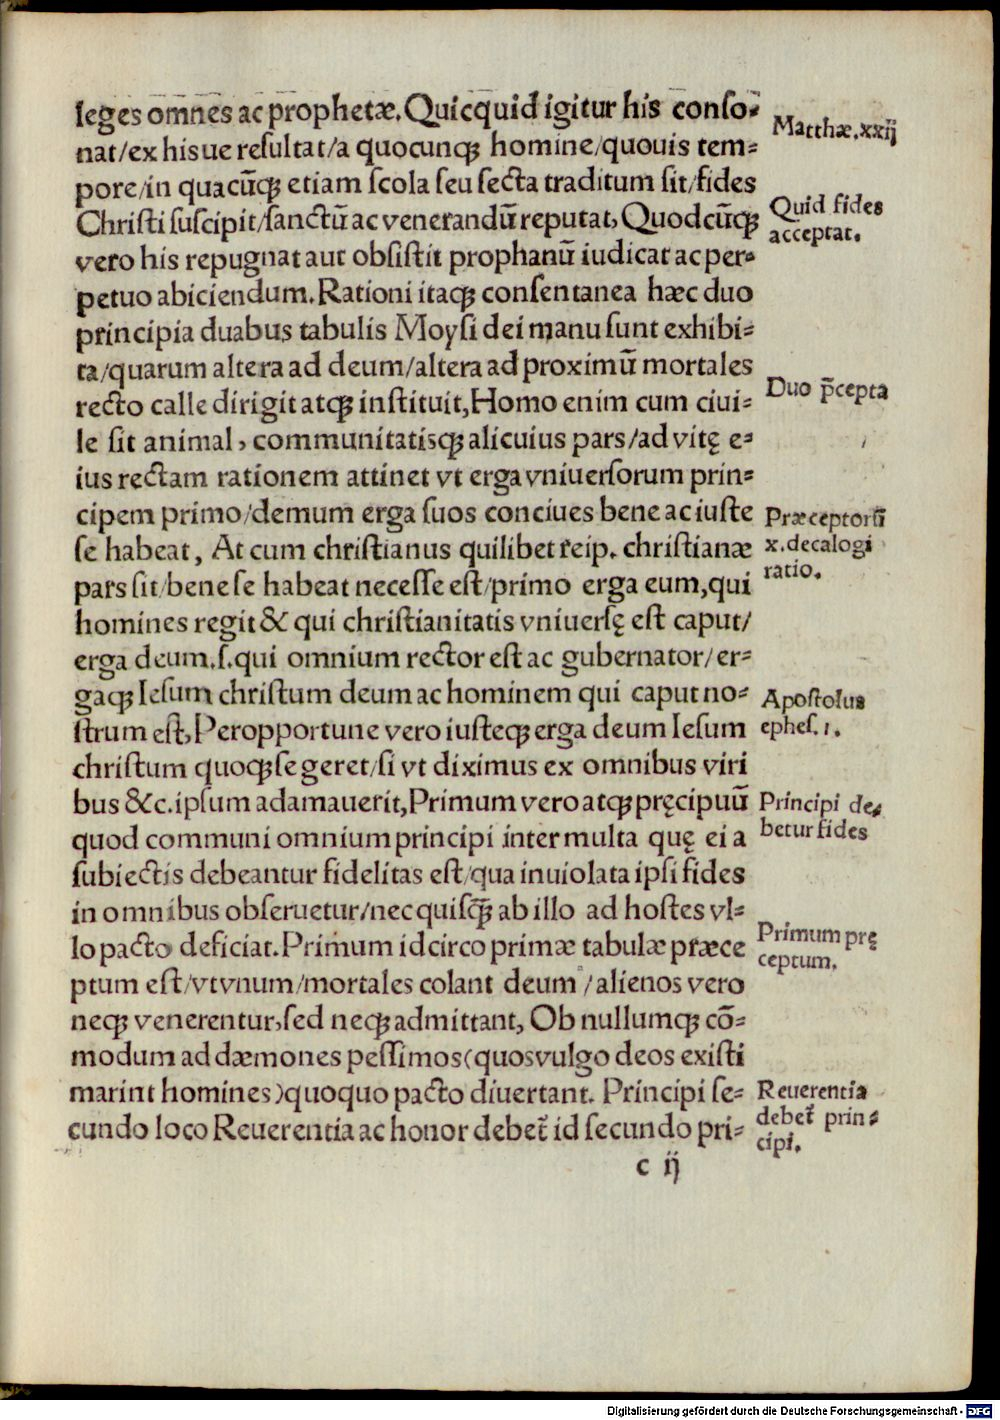 leges omnes ac prophetæ. Quicquid igitur his conso⸗
nat/ex hisue reſultat/a quocunqꝫ homine/quouis tem⸗
pore/in quacūqꝫ etiam ſcola ſeu ſecta traditum ſit/fides
Chriſti ſuſcipit/ſanctū ac venerandū reputat, Quodcūqꝫ
vero his repugnat aut obſiſtit prophanū iudicat ac per⸗
petuo abiciendum. Rationi itaqꝫ conſentanea hæc duo
principia duabus tabulis Moyſi dei manu ſunt exhibi⸗
ta/quarum altera ad deum/altera ad proximū mortales
recto calle dirigit atqꝫ inſtituit, Homo enim cum ciui⸗
le ſit animal, communitatisqꝫ alicuius pars/ad vitę e⸗
ius rectam rationem attinet vt erga vniuerſorum prin⸗
cipem primo/demum erga ſuos conciues bene ac iuſte
ſe habeat, At cum chriſtianus quilibet reip. chriſtianæ
pars ſit/bene ſe habeat neceſſe eſt/primo erga eum, qui
homines regit & qui chriſtianitatis vniuerſę eſt caput/
erga deum.ſ. qui omnium rector eſt ac gubernator/er⸗
gaqꝫ Ieſum chriſtum deum ac hominem qui caput no⸗
ſtrum eſt, Peropportune vero iuſteqꝫ erga deum Ieſum
chriſtum quoqꝫ ſe geret/ſi vt diximus ex omnibus viri
bus &c. ipſum adamauerit, Primum vero atqꝫ pręcipuū
quod communi omnium principi inter multa quę ei a
ſubiectis debeantur fidelitas eſt/qua inuiolata ipſi fides
in omnibus obſeruetur/nec quiſqꝫ̄ ab illo ad hoſtes vl⸗
lo pacto deficiat. Primum idcirco primæ tabulæ præce
ptum eſt/vt vnum/mortales colant deum/alienos vero
neqꝫ venerentur, ſed neqꝫ admittant, Ob nullumqꝫ cō⸗
modum ad dæmones peſſimos (quos vulgo deos exiſti
marint homines) quoquo pacto diuertant. Principi ſe⸗
cundo loco Reuerentia ac honor debet̄ id ſecundo pri⸗
c ij
Matthæ. xxij
Quid fides
acceptat.
Duo p̄cepta
Præceptorū
x. decalogi
ratio.
Apoſtolus
epheſ. 1.
Principi de⸗
betur fides
Primum prę
ceptum.
Reuerentia
debet̄ prin⸗
cipi.
Digitalisierung gefördert durch die Deutsche Forschungsgemeinschaft - DFG